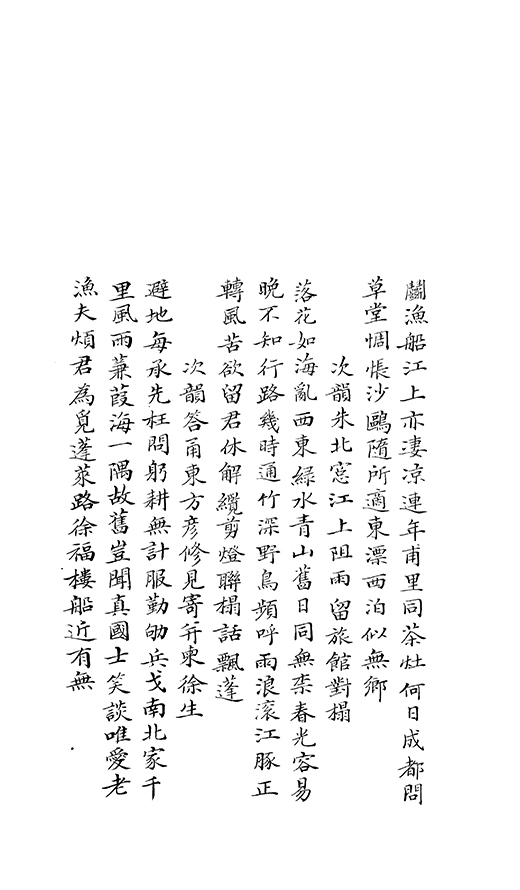 鬭漁船江上亦淒凉連年甫里同茶灶何日成都問
草堂惆悵沙鷗隨所適東漂西泊似無鄉
次韻朱北窓江上阻雨留旅館對榻
落花如海亂西東綠水青山舊日同無柰春光容易
晚不知行路幾時通竹深野鳥頻呼雨浪滚江豚正
轉風苦欲留君休解纜剪燈聯榻話飄蓬
次韻答甬東方彦修見寄幷柬徐生
避地每承先枉問躬耕無計服勤劬兵戈南北家千
里風雨蒹葭海一隅故舊豈聞真國士笑談唯愛老
漁夫煩君為覓蓬萊路徐福樓船近有無